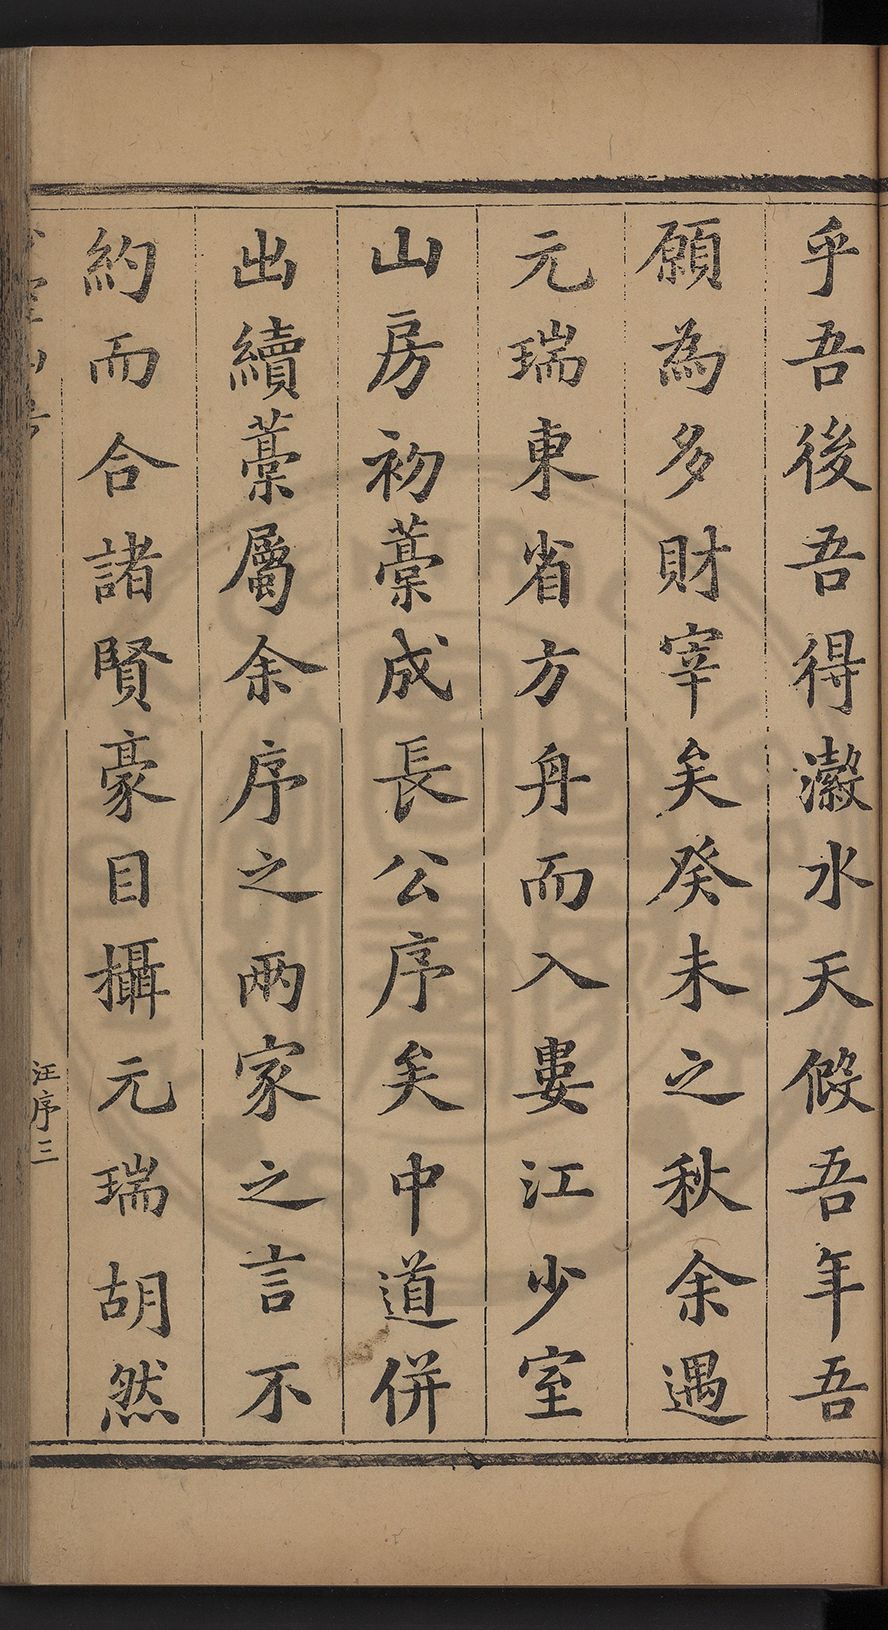 乎吾後吾得瀫水天假吾年吾
願為多財宰矣癸未之秋余遇
元瑞東省方舟而入婁江少室
山房初藁成長公序矣中道併
出續藁屬余序之兩家之言不
約而合諸賢豪目攝元瑞胡然
汪序三